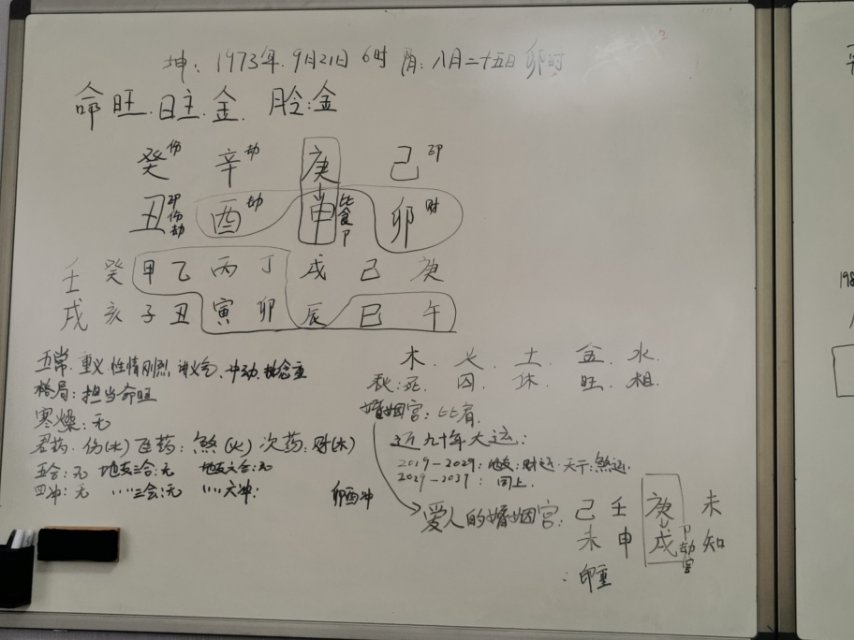 坤：1973年.9月21日 6时 阴：八月二十五日 卯时
命旺.日主.金. 胎:金
癸伤 辛劫 庚 己印
丑印伤劫 酉劫 申比食卩 卯财
壬 癸 甲 乙 丙 丁 戊 己 庚
戌 亥 子 丑 寅 卯 辰 巳 午
五常.重义.性情刚烈.讲义气.冲动.
格局:担当命旺
寒燥:无
君药.伤(水) 臣药:煞(火) 次药:财(木)
五合:无 地支三合:无 地支六合:无
四冲:无 〃〃三会:无 〃〃六冲: 卯酉冲
木. 火. 土. 金. 水.
秋:死. 囚. 休. 旺. 相.
婚姻宫:比肩.
近九十年大运:
2019-2029:地支:财运.天干:煞运.
2029-2039: 同上.
爱人的婚姻宫: 己 壬 庚 未
未 申 戌 知
卩劫官
:印重